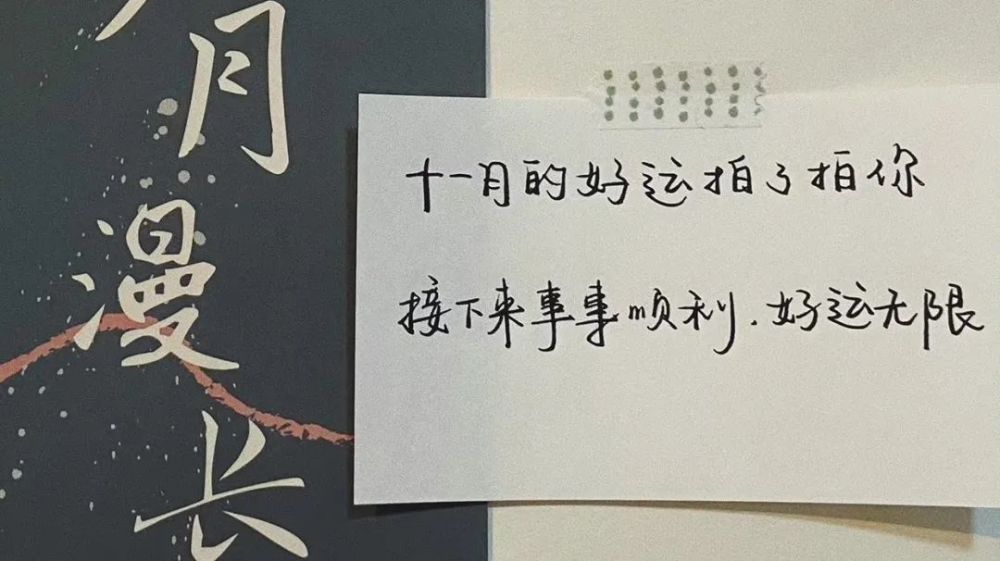 月漫长
十一月的好运拍了拍你
接下来事事顺利.好运无限